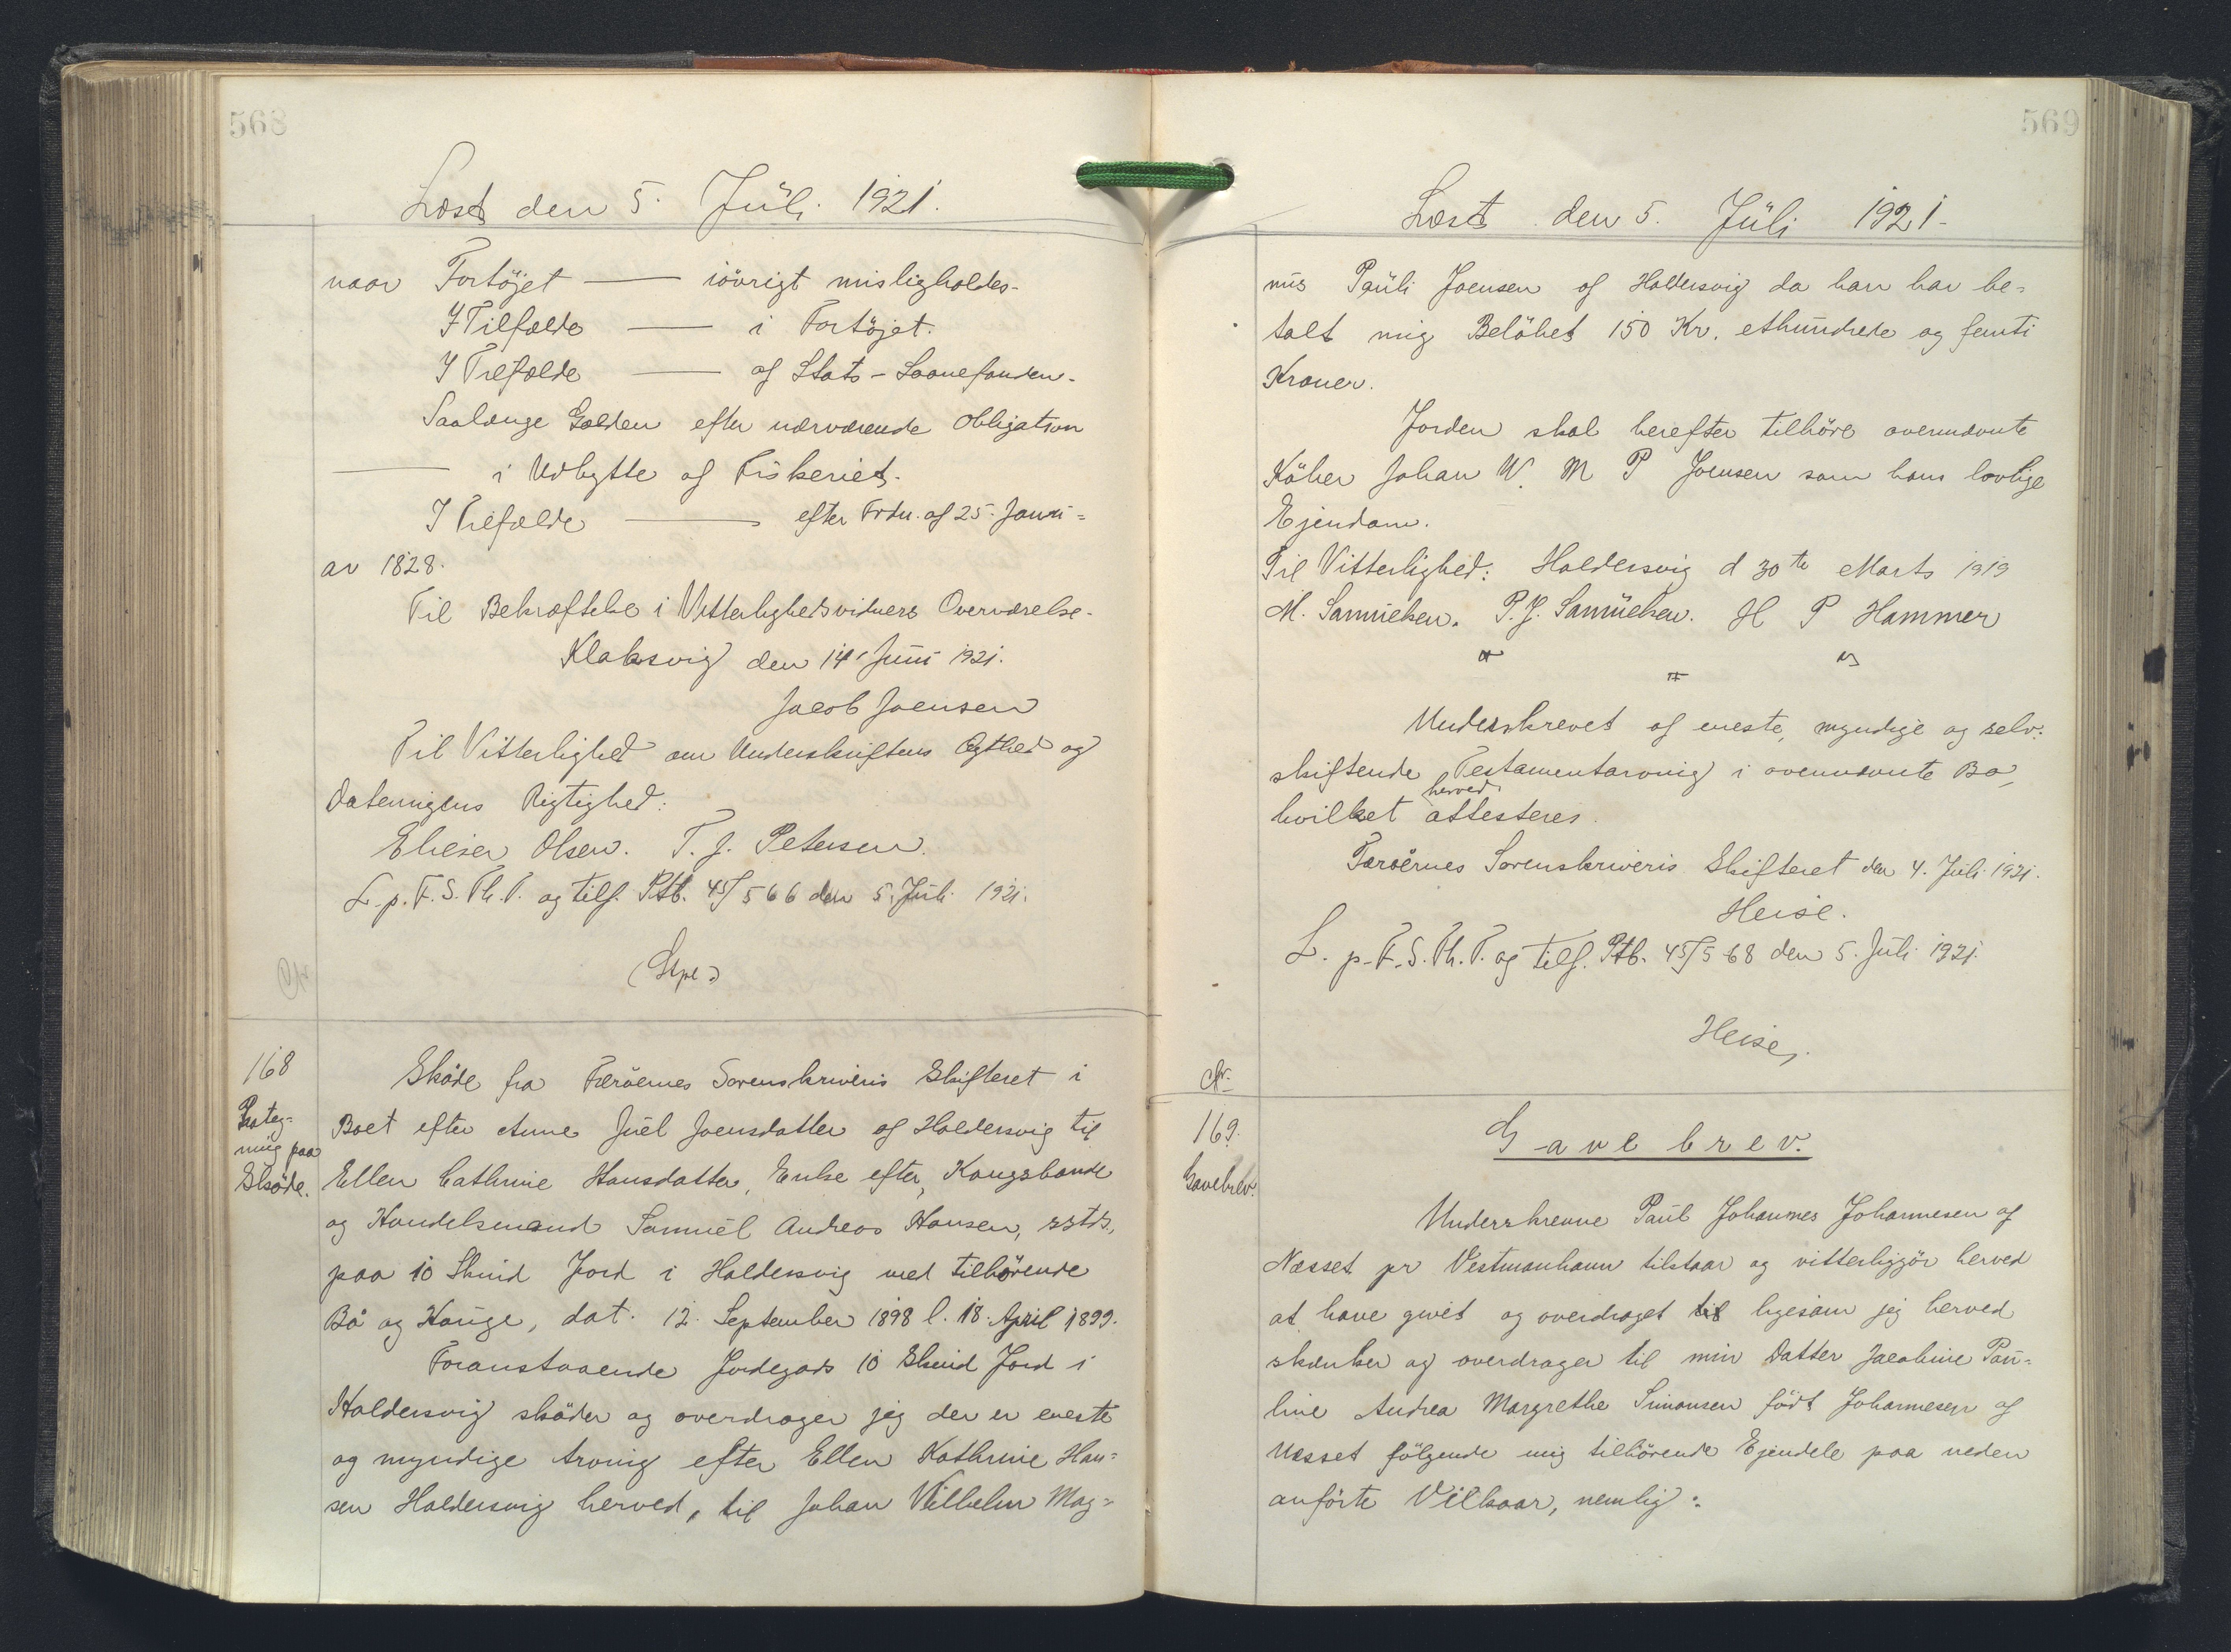 568
Læst den 5. Jüli 1921.
naar Fartöjet — iövrigt misligholdes.
I Tilfælde — i Fartöjet.
I Tilfælde — af Stats-Laanefonden.
Saalænge Gælden efter nærværende Obligation
— i Udbytte af Fiskeriet.
I Tilfælde — efter Frdn. af 25. Janu=
ar 1828.
Til Bekræftelse i Vitterlighedsvidners Overværelse.
Klaksvig den 14' Juni 1921.
Jacob Joensen
Til Vitterlighed om Underskriftens Ægthed og
Dateringens Rigtighed:
Elieser Olsen. T. J. Petersen.
L. p. F. S. Th. P. og tilf. Ptb. 45/566 den 5. Jüli 1921.
(Stpl)
168
Paateg=
ning paa
Skøde.
Sköde fra Færöernes Sorenskriveris Skifteret i
Boet efter Anne Júel Joensdatter af Haldersvig til
Ellen Cathrine Hansdatter, Enke efter, Kongsbonde
og Handelsmand Samuel Andreas Hansen, sstds,
paa 10 Skind Jord i Haldersvig med tilhörende
Bö og Hauge, dat. 12. September 1898 l. 18. April 1899.
Foranstaaende Jordegods 10 Skind Jord i
Haldersvig sköder og overdrager jeg der er eneste
og myndige Arving efter Ellen Kathrine Han=
sen Haldersvig herved, til Johan Vilhelm Mag=
569
Læst den 5. Jüli 1921.
nus Paüli Joensen af Haldersvig da han har be=
talt mig Belöbet 150 Kr. ethundrede og femti
Kroner.
Jorden skal herefter tilhöre ovennævnte
Köber Johan W. M P Joensen som hans lovlige
Ejendom.
Til Vitterlighed: Haldersvig d 30te Marts 1919
M. Samüelsen. P. J. Samüelsen. H P Hammer
Underskrevet af eneste, myndige og selv:
skiftende Testamentarving i ovennævnte Bo,
herved
hvilket attesteres.
Færöernes Sorenskriveris Skifteret den 4. Jüli 1921.
Heise.
L. p. F. S. Th. P. og tilf. Ptb. 45/568 den 5. Jüli 1921.
Heise,
169.
Gavebrev.
Gavebrev.
Underskrevne Paul Johannes Johannesen af
Næsset pr Vestmanhavn tilstaar og vitterliggjör herved
at have givet og overdraget til ligesom jeg herved
skænker og overdrager til min Datter Jacobine Pau=
line Andrea Margrethe Simonsen födt Johannesen af
Næsset fölgende mig tilhörende Ejendele paa neden
anförte Vilkaar, nemlig: